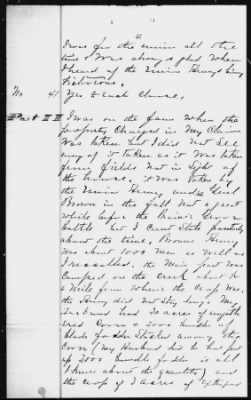 4
I was for the union all the
time & was always glad when
I heard of the Union Armys being
Victorious.
No 41 Yes I made Claims.
Part II I was on the farm when the
property Charged in My Claim
was taken but I did not See
any of it taken as it was taken
from fields not in Sight of
the house, it was taken by
the Union Army under Genl
in the fall not a great
while before the
battle but I Cant State
about the time,
was about 1000 men as well as
I recollect, the Main part was
Camped on the creek about ½
a Mile from where the Crop was,
the Army did not Stay long. My
husband had 30 acres of
Corn & 2000 bundles of
blade fodder Stacked among the
Corn (My Husband did to have put
up 2000 bundles fodder is all
I know about the quantity) and
the crop of 3 acres of